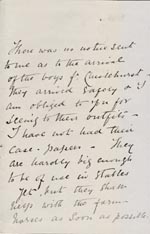 There was no notice sent
to me as to the arrival
of the boys fr.
They arrived safely & I
am obliged to you for
seeing to their outfits -
I have not had their
Case-papers - They
are hardly big enough
to be of use in stables
yet but they shall
help with the farm-
horses as soon as possible.